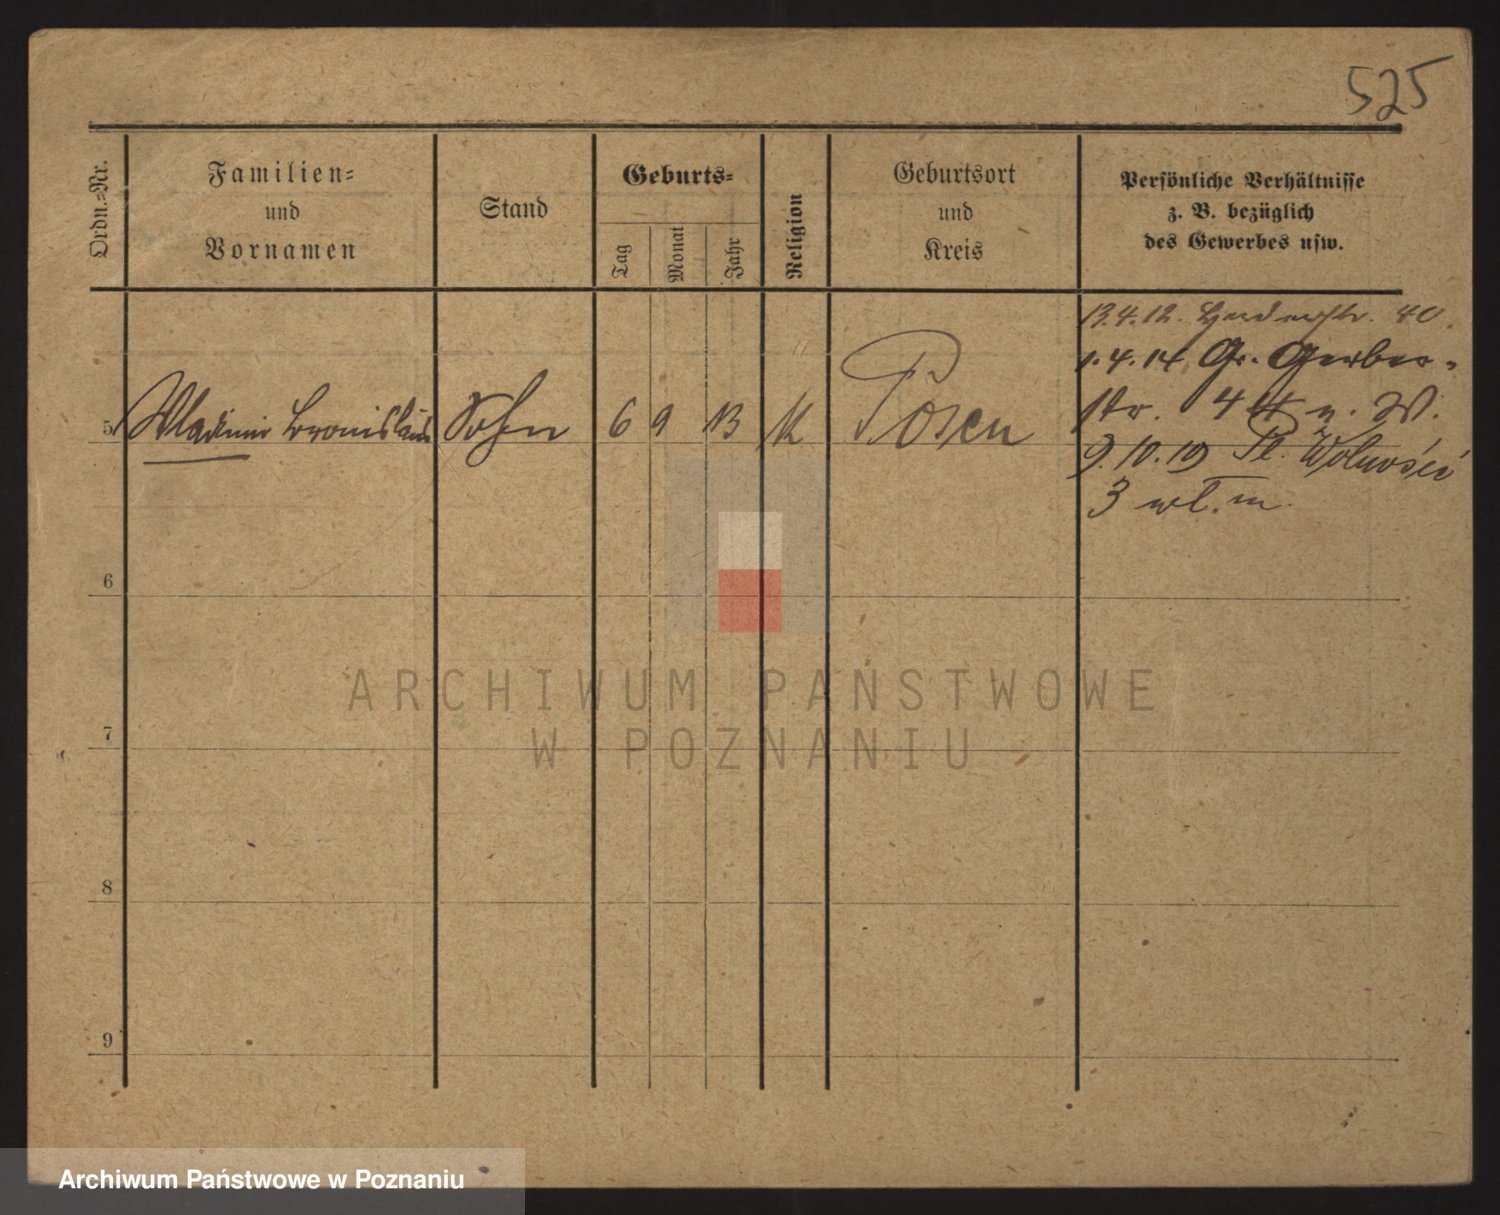 525
Ordn.-Nr.
Familien-
und
Vornamen
Stand
Geburts-
Tag
Monat
Jahr
Religion
Geburtsort
und
Kreis
Persönliche Verhältnisse
z. B. bezüglich
des Gewerbes usw.
5 Wladimir Bronislaus Sohn 6 9 13 K Posen
13.4.12. 40.
1.4.14 Gr. Gerber-
str. 44 z. W.
9.10.19 Pl. Wolności
3 wł. m.
6
7
8
9
ARCHIWUM PAŃSTWOWE
W POZNANIU
Archiwum Państwowe w Poznaniu